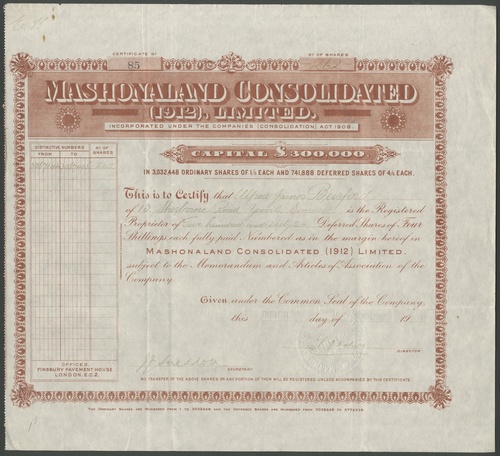 CERTIFICATE Nº
Nº OF SHARES
85
MASHONALAND CONSOLIDATED
(1912), LIMITED.
INCORPORATED UNDER THE COMPANIES (CONSOLIDATION) ACT 1908.
DISTINCTIVE NUMBERS
Nº OF SHARES
FROM
TO
CAPITAL £300,000
IN 3,032,448 ORDINARY SHARES OF 1/- EACH AND 741,888 DEFERRED SHARES OF 4/- EACH.
This is to Certify that Alfred James Beresford
of 10 Road is the Registered
Proprietor of Two hundred and Deferred Shares of Four
Shillings each fully paid. Numbered as in the margin hereof in
MASHONALAND CONSOLIDATED (1912) LIMITED.
subject to the Memorandum and Articles of Association of the
Company.
Given under the Common Seal of the Company,
this day of 19
DIRECTOR
SECRETARY
NO TRANSFER OF THE ABOVE SHARES OR ANY PORTION OF THEM WILL BE REGISTERED UNLESS ACCOMPANIED BY THIS CERTIFICATE.
OFFICES.
FINSBURY PAVEMENT HOUSE
LONDON, E.C.2.
THE ORDINARY SHARES ARE NUMBERED FROM 1 TO 3032448 AND THE DEFERRED SHARES ARE NUMBERED FROM 3032449 TO 3774336